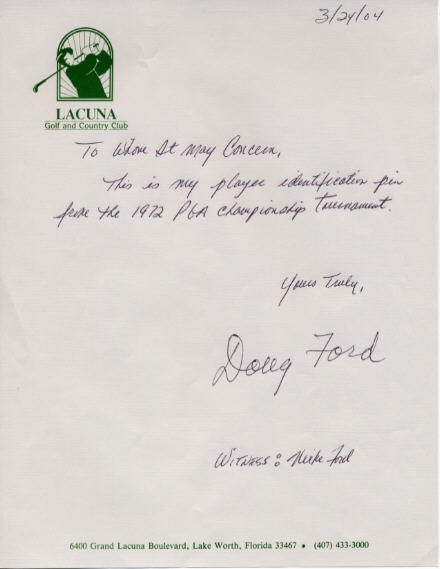 3/24/04
LACUNA
Golf and Country Club
To Whom It May Concern,
This is my player identification pin
from the 1972 PGA Championship Tournament.
Yours Truly,
Doug Ford
WITNESS: Mike Ford
6400 Grand Lacuna Boulevard, Lake Worth, Florida 33467 • (407) 433-3000